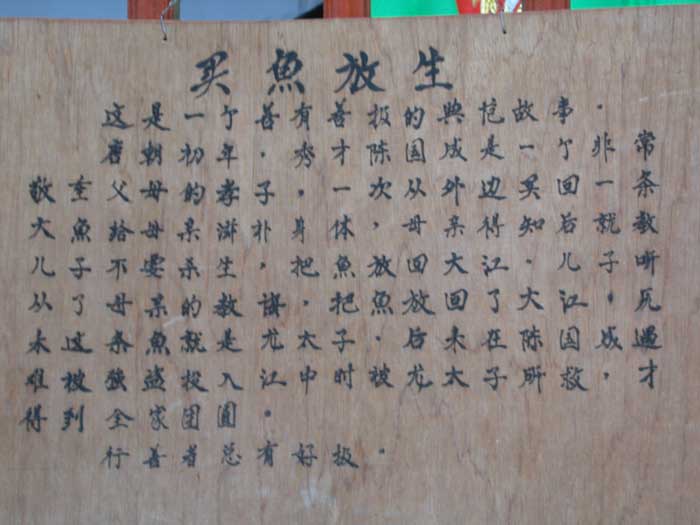 买魚放生
这是一个善有善报的典范故事。
唐朝初年,秀才陈国成是一个非常
敬重父母的孝子,一次,从外边买回一条
大魚给母亲滋补身体,母亲得知后就教
儿子不要杀生,把魚放回大江。儿子听
从了母亲的教诲,把魚放回了大江。原
来这条魚就是龙太子。后来在陈国成遇
难被強盗投入江中时,被龙太子所救,才
得到全家团圆。
行善者总有好报。